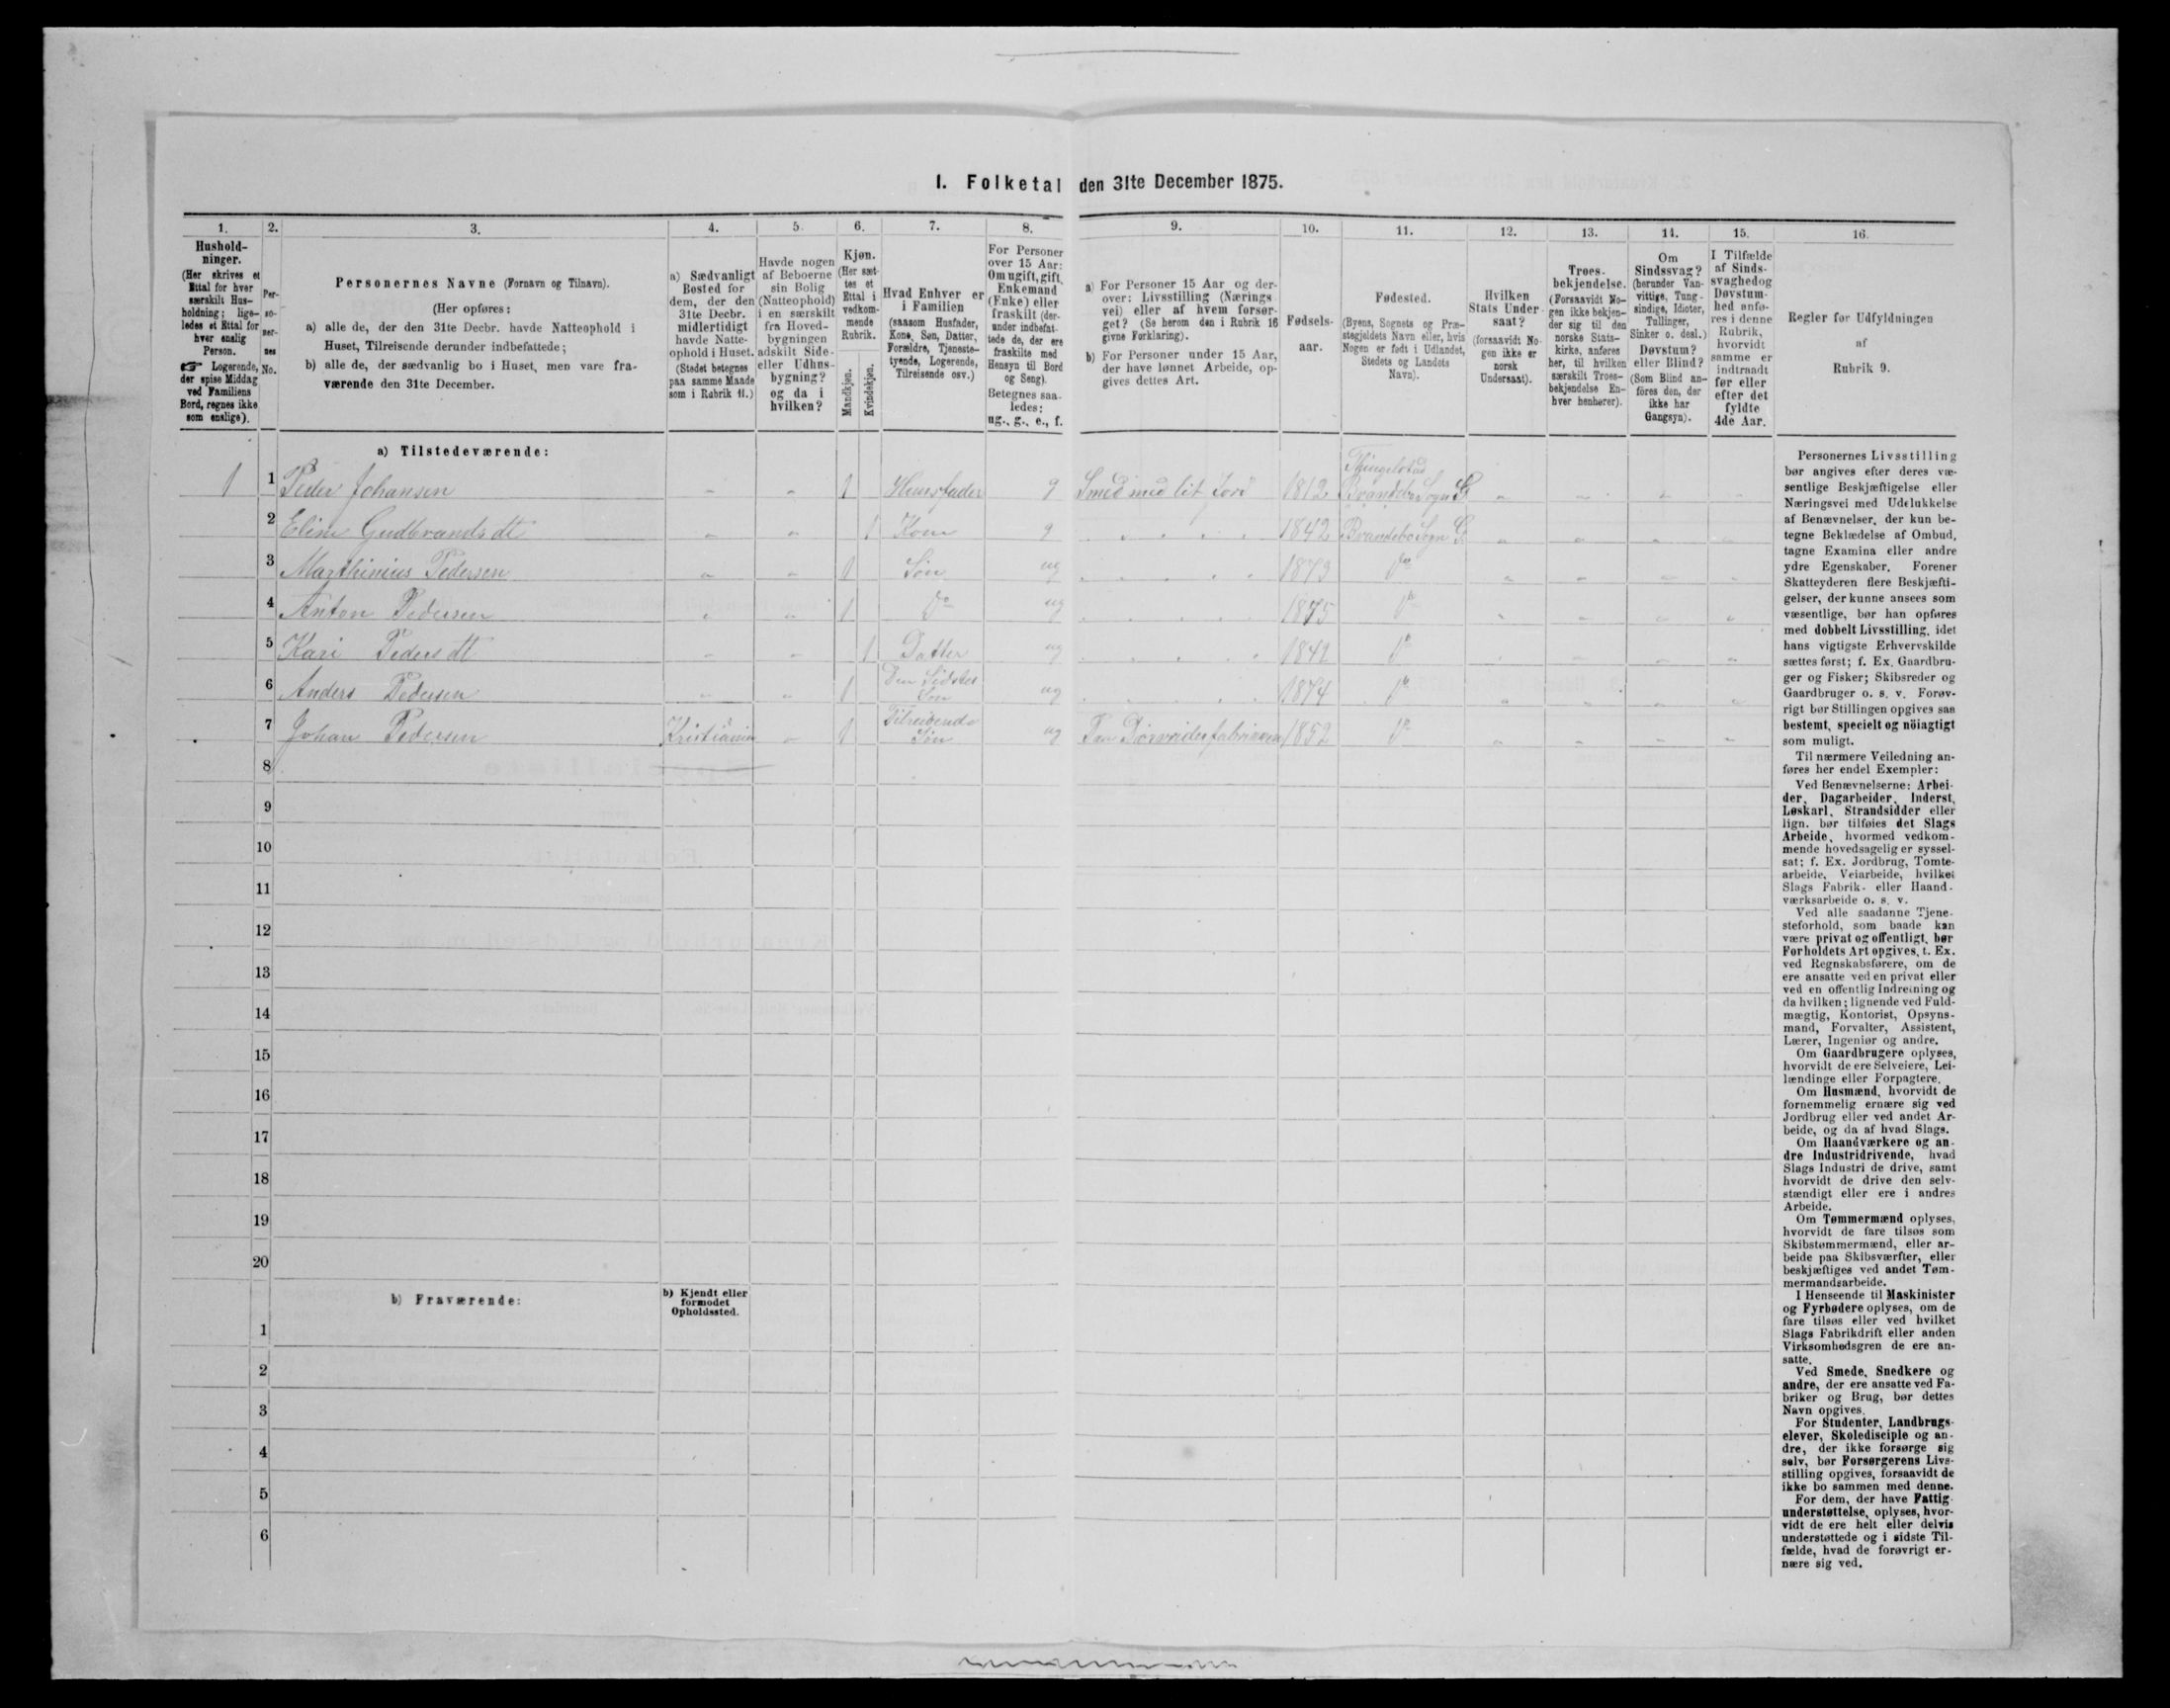 I. Folketal den 31te December 1875.
1.
Hushold-
ninger.
(Her skrives et
Ettal for hver
særskilt Hus-
holdning; lige-
ledes et Ettal for
hver enslig
Person.
☞ Logerende,
der spise Middag
ved Familiens
Bord, regnes ikke
som enslige).
2.
Per-
so-
ner-
nes
No.
3.
Personernes Navne (Fornavn og Tilnavn).
(Her opføres:
a) alle de, der den 31te Decbr. havde Natteophold i
Huset, Tilreisende derunder indbefattede;
b) alle de, der sædvanlig bo i Huset, men vare fra-
værende den 31te December.
4.
a) Sædvanligt
Bosted for
dem, der den
31te Decbr.
midlertidigt
havde Natte-
ophold i Huset.
(Stedet betegnes
paa samme Maade
som i Rubrik 11.)
5.
Havde nogen
af Beboerne
sin Bolig
(Natteophold)
i en særskilt
fra Hoved-
bygningen
adskilt Side-
eller Udhus-
bygning?
og da i
hvilken?
6.
Kjøn.
(Her sæt-
tes et
Ettal i
vedkom-
mende
Rubrik.
Mandkjøn.
Kvindekjøn.
7.
Hvad Enhver er
i Familien
(saasom Husfader,
Kone, Søn, Datter,
Forældre, Tjeneste-
tyende, Logerende,
Tilreisende osv.)
8.
For Personer
over 15 Aar:
Om ugift, gift,
Enkemand
(Enke) eller
fraskilt (der-
under indbefat-
tede de, der ere
fraskilte med
Hensyn til Bord
og Seng).
Betegnes saa-
ledes:
ug., g., e., f.
9.
a) For Personer 15 Aar og der-
over: Livsstilling (Nærings
vei) eller af hvem forsør-
get? (Se herom den i Rubrik 16
givne Forklaring).
b) For Personer under 15 Aar,
der have lønnet Arbeide, op-
gives dettes Art.
10.
Fødsels-
aar.
11.
Fødested.
(Byens, Sognets og Præ-
stegjeldets Navn eller, hvis
Nogen er født i Udlandet,
Stedets og Landets
Navn).
12.
Hvilken
Stats Under-
saat?
(forsaavidt No-
gen ikke er
norsk
Undersaat).
13.
Troes-
bekjendelse.
(Forsaavidt No-
gen ikke bekjen-
der sig til den
norske Stats-
kirke, anføres
her, til hvilken
særskilt Troes-
bekjendelse En-
hver henhører).
14.
Om
Sindssvag?
(herunder Van-
vittige, Tung-
sindige, Idioter,
Tullinger,
Sinker o. desl.)
Døvstum?
eller Blind?
(Som Blind an-
føres den, der
ikke har
Gangsyn).
15.
I Tilfælde
af Sinds-
svaghed og
Døvstum-
hed anfø-
res i denne
Rubrik,
hvorvidt
samme er
indtraadt
før eller
efter det
fyldte
4de Aar.
16.
Regler for Udfyldningen
af
Rubrik 9.
a) Tilstedeværende:
1 1 Peder Johansen 1 Huusfader g Smed med lit Jord 1812 Brandebo Sogn G
2 Eline Gudbrandsdt 1 Kone g 1842 Brandebo Sogn G
3 Marthinius Pedersen 1 Søn ug 1873 Do
4 Anton Pedersen 1 Do ug 1875 Do
5 Kari Pedersdt 1 Datter ug 1842 Do
6 Anders Pedersen 1 Den Sidstes Søn ug 1874 Do
7 Johan Pedersen Kristiania 1 Tilreisende Søn ug 1852 Do
8
9
10
11
12
13
14
15
16
17
18
19
20
b) Fraværende:
b) Kjendt eller
formodet
Opholdssted.
1
2
3
4
5
6
Personernes Livsstilling
bør angives efter deres væ-
sentlige Beskjæftigelse eller
Næringsvei med Udelukkelse
af Benævnelser, der kun be-
tegne Beklædelse af Ombud,
tagne Examina eller andre
ydre Egenskaber. Forener
Skatteyderen flere Beskjæfti-
gelser, der kunne ansees som
væsentlige, bør han opføres
med dobbelt Livsstilling, idet
hans vigtigste Erhvervskilde
sættes først; f. Ex. Gaardbru-
ger og Fisker; Skibsreder og
Gaardbruger o. s. v. Forøv-
rigt bør Stillingen opgives saa
bestemt, specielt og nöiagtigt
som muligt.
Til nærmere Veiledning an-
føres her endel Exempler:
Ved Benævnelserne: Arbei-
der, Dagarbeider, Inderst,
Løskarl, Strandsidder eller
lign. bør tilføies det Slags
Arbeide, hvormed vedkom-
mende hovedsagelig er syssel-
sat; f. Ex. Jordbrug, Tomte-
arbeide, Veiarbeide, hvilket
Slags Fabrik- eller Haand-
værksarbeide o. s. v.
Ved alle saadanne Tjene-
steforhold, som baade kan
være privat og offentligt, bør
Forholdets Art opgives, t. Ex.
ved Regnskabsførere, om de
ere ansatte ved en privat eller
ved en offentlig Indretning og
da hvilken; lignende ved Fuld-
mægtig, Kontorist, Opsyns-
mand, Forvalter, Assistent,
Lærer, Ingeniør og andre.
Om Gaardbrugere oplyses,
hvorvidt de ere Selveiere, Lei-
lændinge eller Forpagtere.
Om Husmænd, hvorvidt de
fornemmelig ernære sig ved
Jordbrug eller ved andet Ar-
beide, og da af hvad Slags.
Om Haandværkere og an-
dre Industridrivende, hvad
Slags Industri de drive, samt
hvorvidt de drive den selv-
stændigt eller ere i andres
Arbeide.
Om Tømmermænd oplyses,
hvorvidt de fare tilsøs som
Skibstømmermænd, eller ar-
beide paa Skibsværfter, eller
beskjæftiges ved andet Tøm-
mermandsarbeide.
I Henseende til Maskinister
og Fyrbødere oplyses, om de
fare tilsøs eller ved hvilket
Slags Fabrikdrift eller anden
Virksomhedsgren de ere an-
satte.
Ved Smede, Snedkere og
andre, der ere ansatte ved Fa-
briker og Brug, bør dettes
Navn opgives.
For Studenter, Landbrugs-
elever, Skoledisciple og an-
dre, der ikke forsørge sig
selv, bør Forsørgerens Livs-
stilling opgives, forsaavidt de
ikke bo sammen med denne.
For dem, der have Fattig-
understøttelse, oplyses, hvor-
vidt de ere helt eller delvis
understøttede og i sidste Til-
fælde, hvad de forøvrigt er-
nære sig ved.